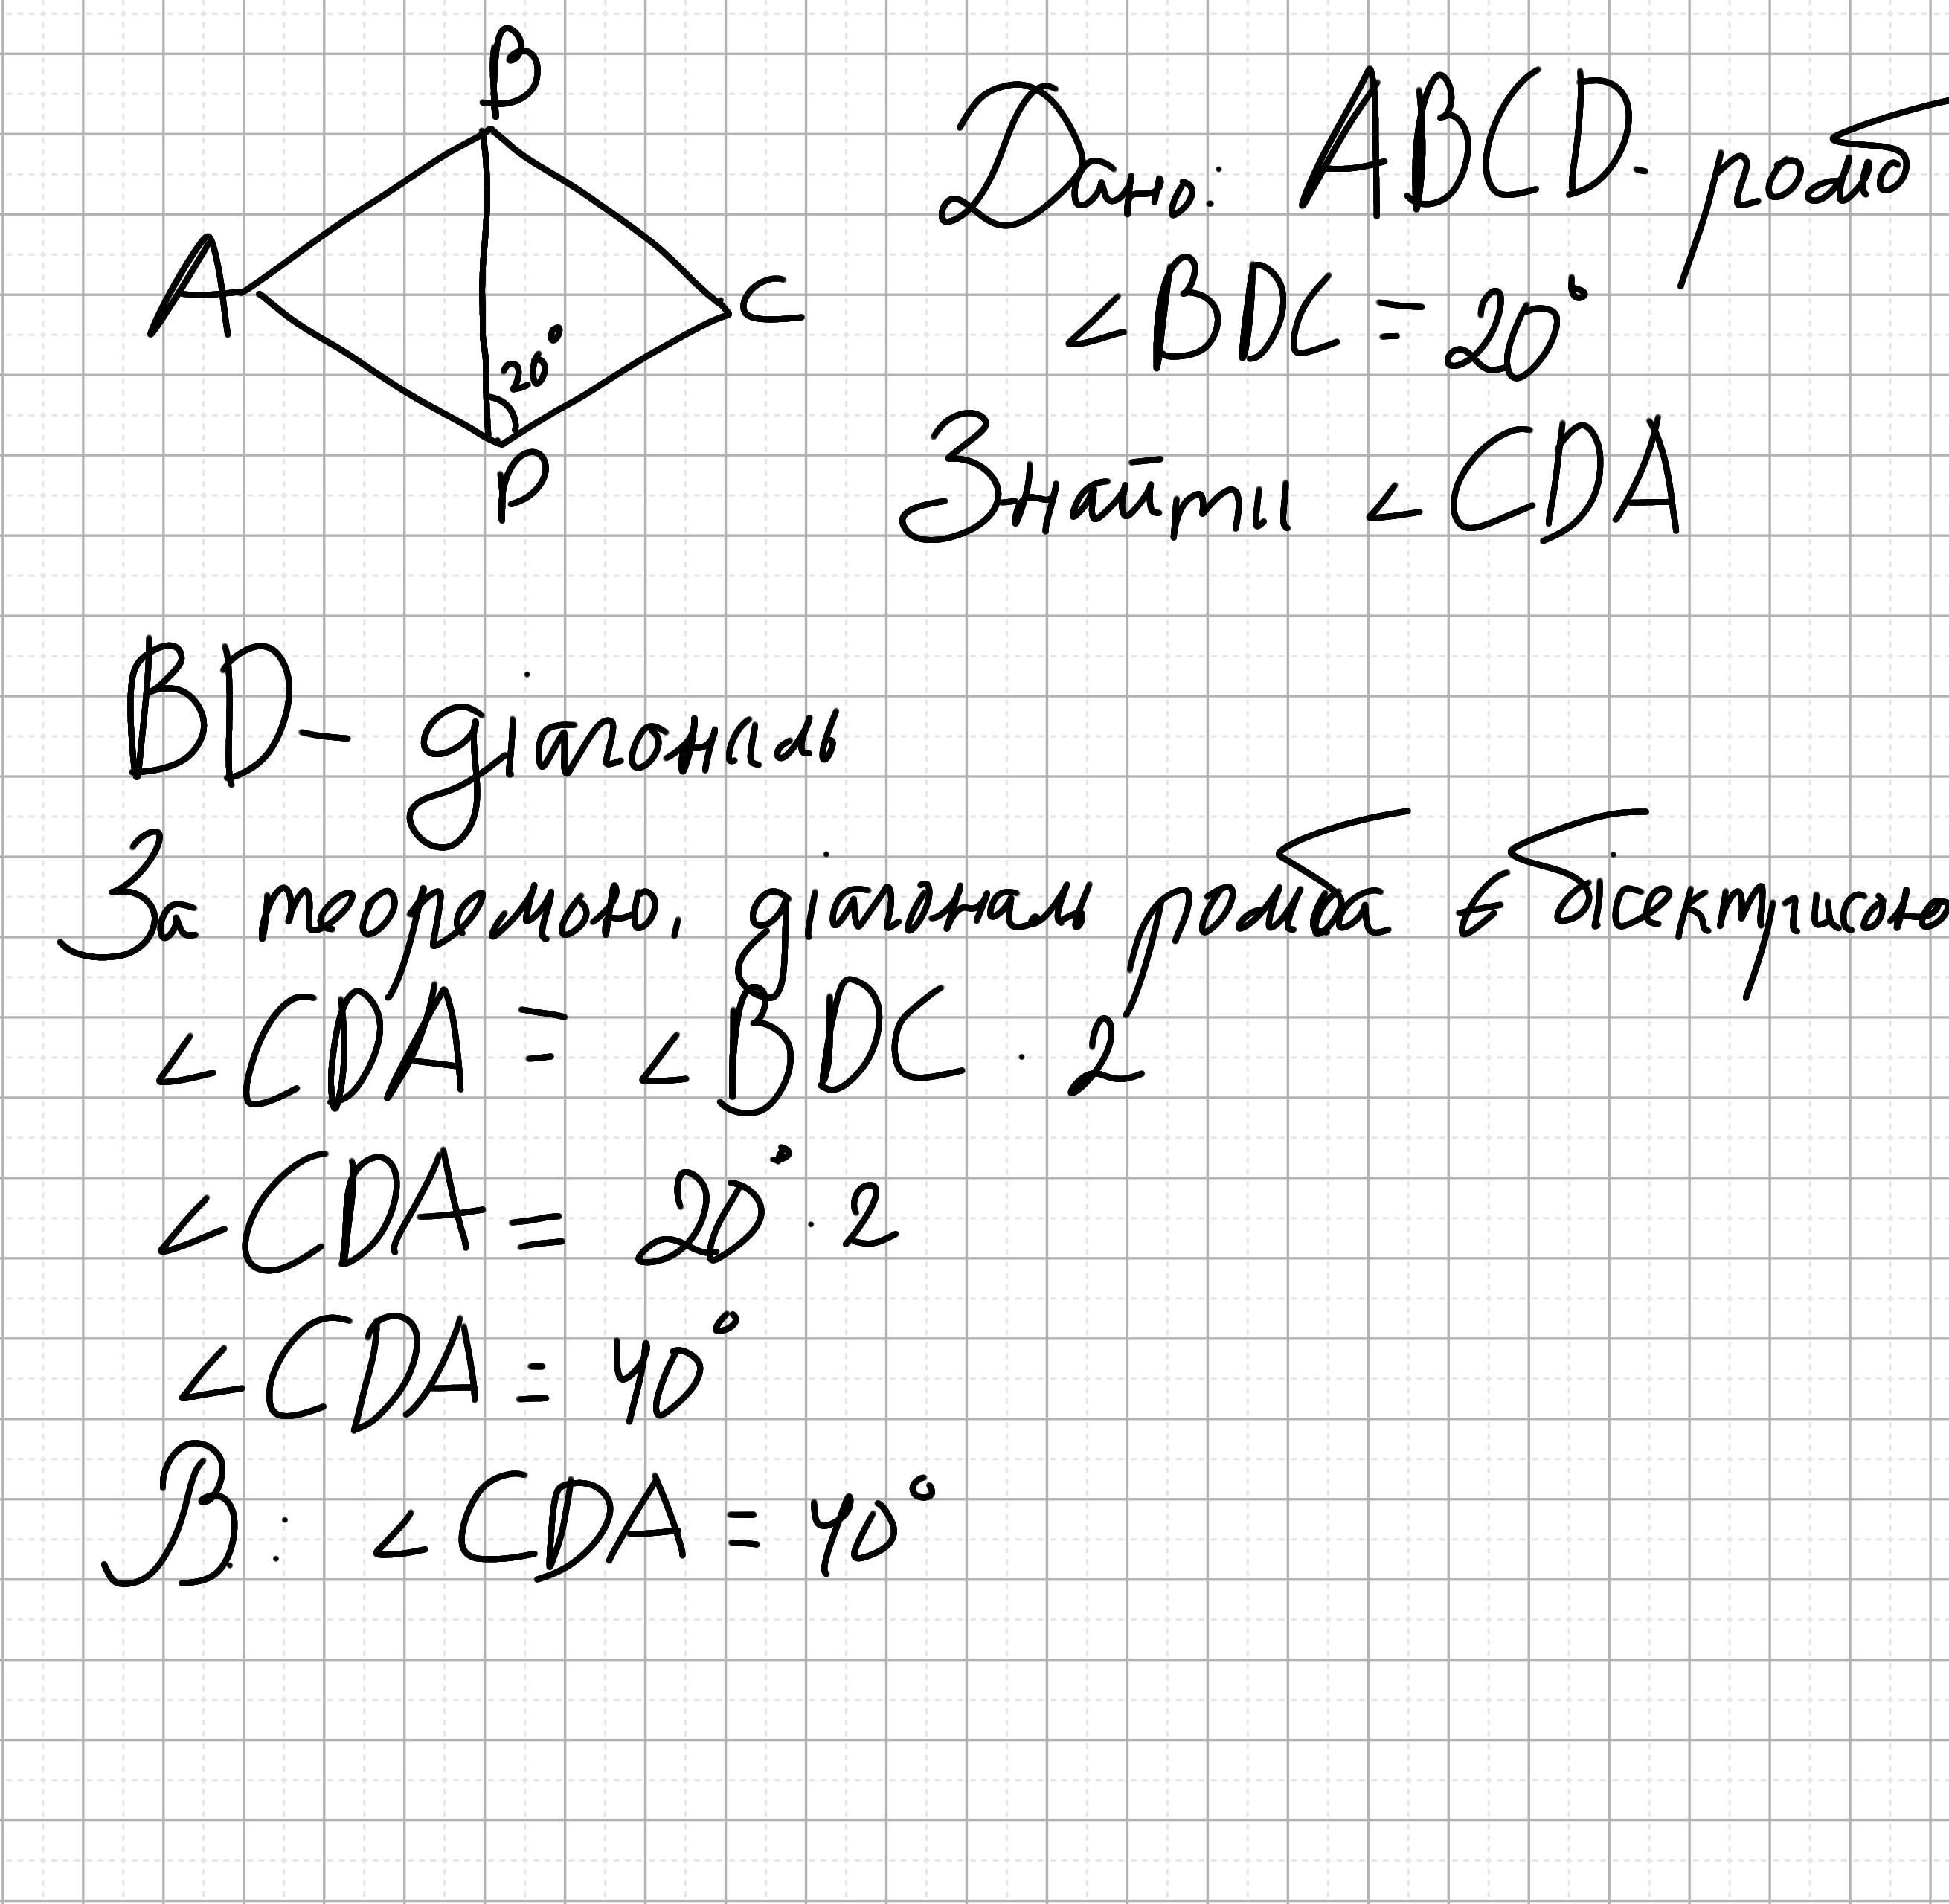 B
A
C
20°
D
Дано: ABCD - ромб
∠BDC = 20°
Знайти ∠CDA
BD - діагональ
За теоремою, діагональ ромба є бісектрисою
∠CDA = ∠BDC · 2
∠CDA = 20° · 2
∠CDA = 40°
В: ∠CDA = 40°